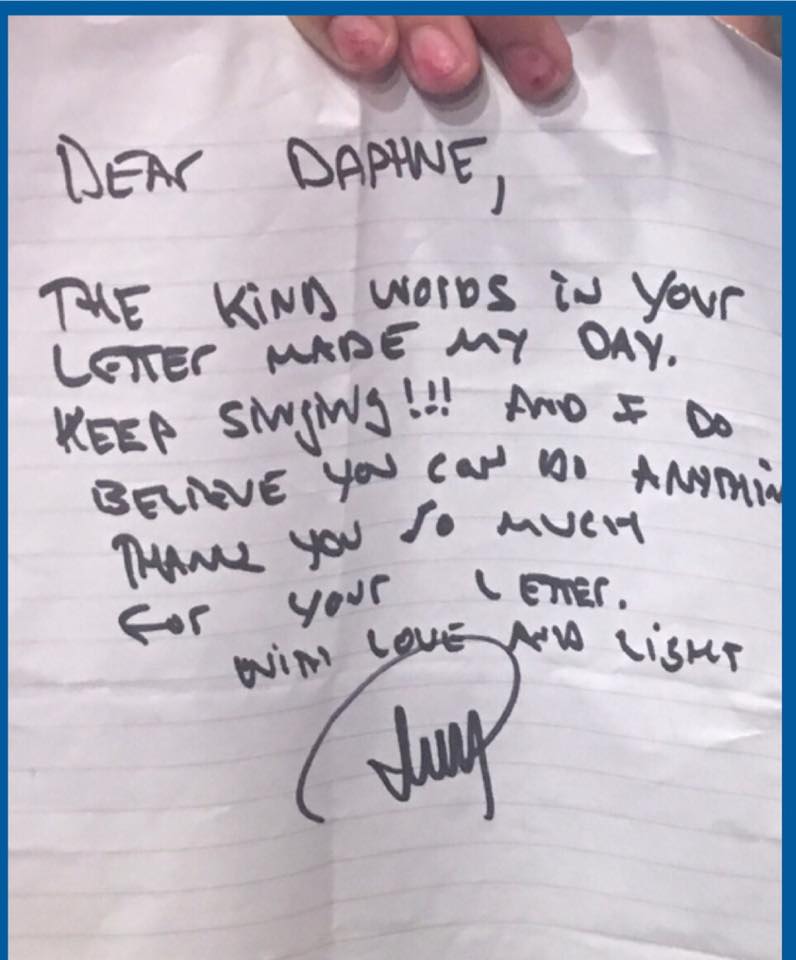 DEAr DAPHNE,
THE KiND WOrDS iN YOUr
LETTEr MADE MY DAY.
KEEP SiNgiNg!!! AND I DO
BELIEVE YOU CAN DO ANYTHIN
THANK YOU SO MUCH
FOr YOUr LETTEr.
WITH LOVE AND LIGHT